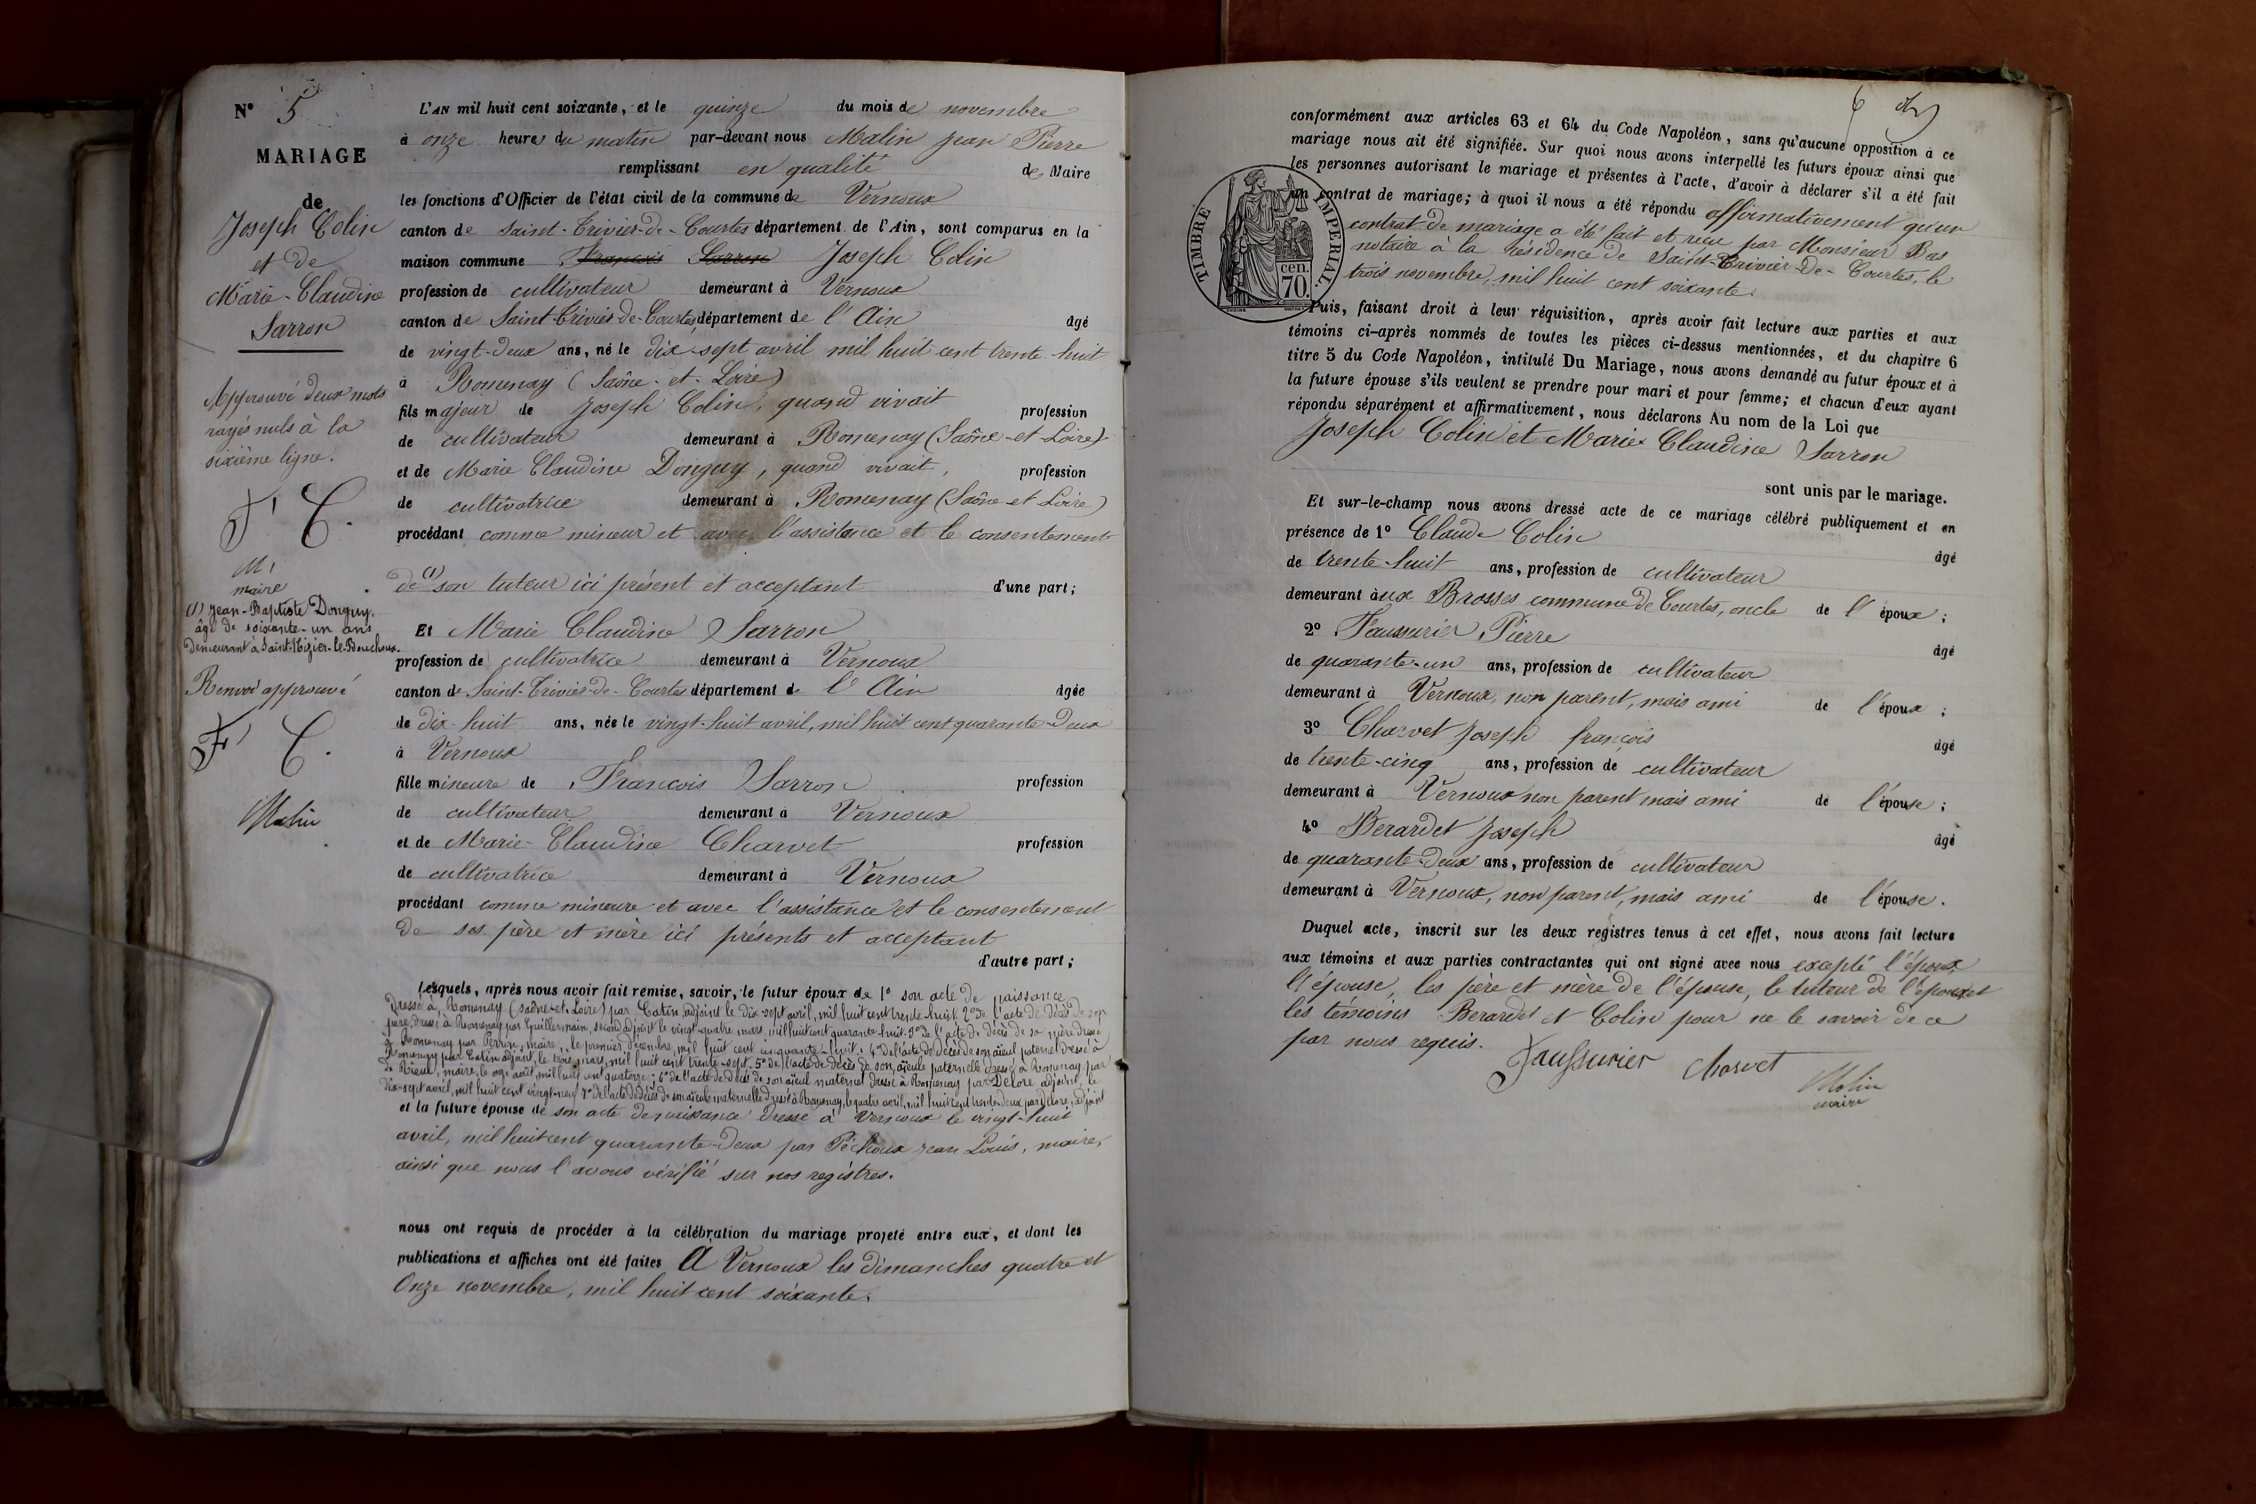 N° 5
MARIAGE
de
Joseph Colin
et de
Marie-Claudine
Sarron
Approuvé deux mots
rayés nuls à la
sixième ligne.
F C.
M
maire
(1) Jean-Baptiste Donguy.
âgé de soixante-un ans
demeurant à Saint-Nizier-le-Bouchoux.
Renvoi approuvé
F C.
Malin
L'AN mil huit cent soixante, et le quinze du mois de novembre
à onze heures du matin par-devant nous Malin jean Pierre
remplissant en qualité de Maire
les fonctions d'Officier de l'état civil de la commune de Vernoux
canton de Saint-Trivier-de-Courtes département de l'Ain, sont comparus en la
maison commune François Sarron Joseph Colin
profession de cultivateur demeurant à Vernoux
canton de Saint-Trivier-de-Courtes, département de l'Ain âgé
de vingt-deux ans, né le dix-sept avril mil huit cent trente-huit
à Romenay (Saône-et-Loire)
fils majeur de Joseph Colin, quand vivait profession
de cultivateur demeurant à Romenay (Saône-et-Loire)
et de Marie Claudine Donguy, quand vivait, profession
de cultivatrice demeurant à Romenay (Saône-et-Loire)
procédant comme mineur et avec l'assistance et le consentement
de (1) son tuteur ici présent et acceptant d'une part;
Et Marie Claudine Sarron
profession de cultivatrice demeurant à Vernoux
canton de Saint-Trivier-de-Courtes département de l'Ain âgée
de dix-huit ans, née le vingt-huit avril, mil huit cent quarante-deux
à Vernoux
fille mineure de François Sarron profession
de cultivateur demeurant à Vernoux
et de Marie-Claudine Charvet profession
de cultivatrice demeurant à Vernoux
procédant comme mineure et avec l'assistance et le consentement
de ses père et mère ici présents et acceptant
d'autre part;
Lesquels, après nous avoir fait remise, savoir, le futur époux de 1° son acte de naissance
dressé à Romenay (Saône-et-Loire) par Catin, adjoint le dix-sept avril, mil huit cent trente-huit. 2° de l'acte de décès de son
père, dressé à Romenay par Guillermin, second adjoint le vingt-quatre mars, mil huit cent quarante-huit. 3° de l'acte de décès de sa mère dressé
à Romenay par Perron, maire, le premier décembre, mil huit cent cinquante-huit. 4° de l'acte de décès de son aïeul paternel dressé à
Romenay par Catin adjoint, le trois mars, mil huit cent trente-sept. 5° de l'acte de décès de son aïeule paternelle dressé à Romenay par
maire, le onze août, mil huit cent quatorze; 6° de l'acte de décès de son aïeul maternel dressé à Romenay par Delore, adjoint, le
dix-sept avril, mil huit cent vingt-neuf 7° de l'acte de décès de son aïeule maternelle dressé à Romenay, le quatre avril, mil huit cent trente-deux par Delore, adjoint
et la future épouse de son acte de naissance dressé à Vernoux le vingt-huit
avril, mil huit cent quarante-deux par Péchoux jean Louis, maire,
ainsi que nous l'avons vérifié sur nos registres.
nous ont requis de procéder à la célébration du mariage projeté entre eux, et dont les
publications et affiches ont été faites A Vernoux les dimanches quatre et
Onze novembre, mil huit cent soixante.
6
conformément aux articles 63 et 64 du Code Napoléon, sans qu'aucune opposition à ce
mariage nous ait été signifiée. Sur quoi nous avons interpellé les futurs époux ainsi que
les personnes autorisant le mariage et présentes à l'acte, d'avoir à déclarer s'il a été fait
un contrat de mariage; à quoi il nous a été répondu affirmativement qu'un
contrat de mariage a été fait et reçu par Monsieur Bas
notaire à la résidence de Saint-Trivier-de-Courtes, le
trois novembre, mil huit cent soixante.
TIMBRE IMPERIAL.
70 cen.
Puis, faisant droit à leur réquisition, après avoir fait lecture aux parties et aux
témoins ci-après nommés de toutes les pièces ci-dessus mentionnées, et du chapitre 6
titre 5 du Code Napoléon, intitulé Du Mariage, nous avons demandé au futur époux et à
la future épouse s'ils veulent se prendre pour mari et pour femme; et chacun d'eux ayant
répondu séparément et affirmativement, nous déclarons Au nom de la Loi que
Joseph Colin et Marie Claudine Sarron
sont unis par le mariage.
Et sur-le-champ nous avons dressé acte de ce mariage célébré publiquement et en
présence de 1° Claude Colin
âgé
de trente-huit ans, profession de cultivateur
demeurant aux Brosses commune de Courtes, oncle de l'époux;
2° Faussurier Pierre
âgé
de quarante-un ans, profession de cultivateur
demeurant à Vernoux, non parent, mais ami de l'époux;
3° Charvet Joseph françois
âgé
de trente-cinq ans, profession de cultivateur
demeurant à Vernoux non parent mais ami de l'épouse;
4° Berardet Joseph
âgé
de quarante-deux ans, profession de cultivateur
demeurant à Vernoux, non parent, mais ami de l'épouse.
Duquel acte, inscrit sur les deux registres tenus à cet effet, nous avons fait lecture
aux témoins et aux parties contractantes qui ont signé avec nous excepté l'époux,
l'épouse, les père et mère de l'épouse, le tuteur de l'époux et
les témoins Berardet et Colin pour ne le savoir de ce
par nous requis.
Faussurier Charvet
Malin
maire